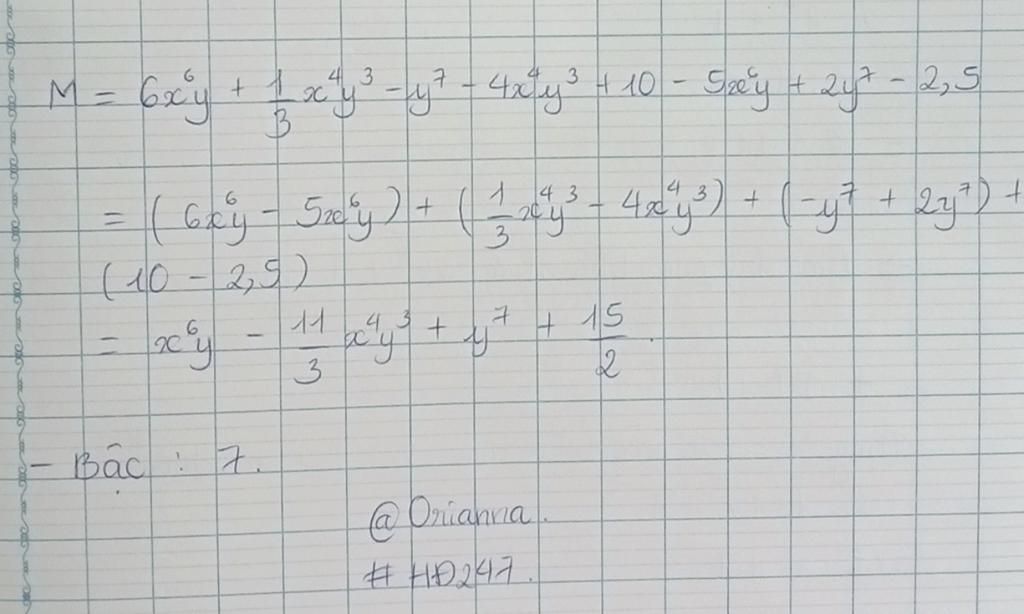 M = 6x⁶y + 1/3 x⁴y³ - y⁷ - 4x⁴y³ + 10 - 5x⁶y + 2y⁷ - 2,5
= (6x⁶y - 5x⁶y) + (1/3 x⁴y³ - 4x⁴y³) + (-y⁷ + 2y⁷) +
(10 - 2,5)
= x⁶y - 11/3 x⁴y³ + y⁷ + 15/2.
- Bậc : 7.
@Orianna.
# HĐ247.